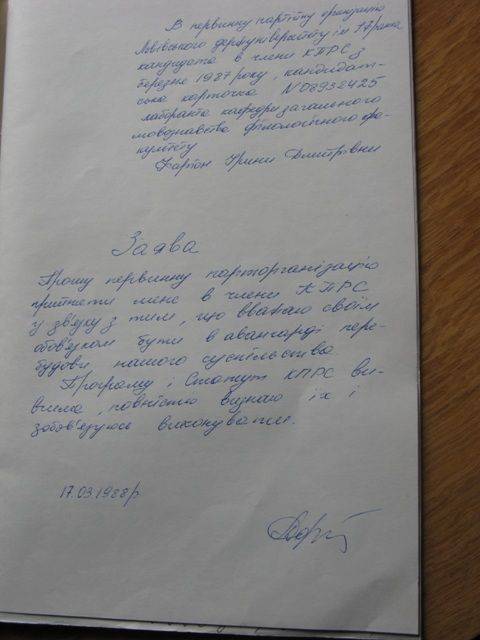 В первинну партійну організацію
Львівського держуніверситету ім. І. Франка
кандидата в члени КПРС з
березня 1987 року, кандидат-
ська карточка N 08932425
лаборанта кафедри загального
мовознавства філологічного фа-
культету
Фаріон Ірини Дмитрівни
Заява
Прошу первинну парторганізацію
прийняти мене в члени КПРС
у зв'язку з тим, що вважаю своїм
обов'язком бути в авангарді пере-
будови нашого суспільства.
Програму і Статут КПРС ви-
вчила, повністю визнаю їх і
зобов'язуюсь виконувати.
17.03.1988р